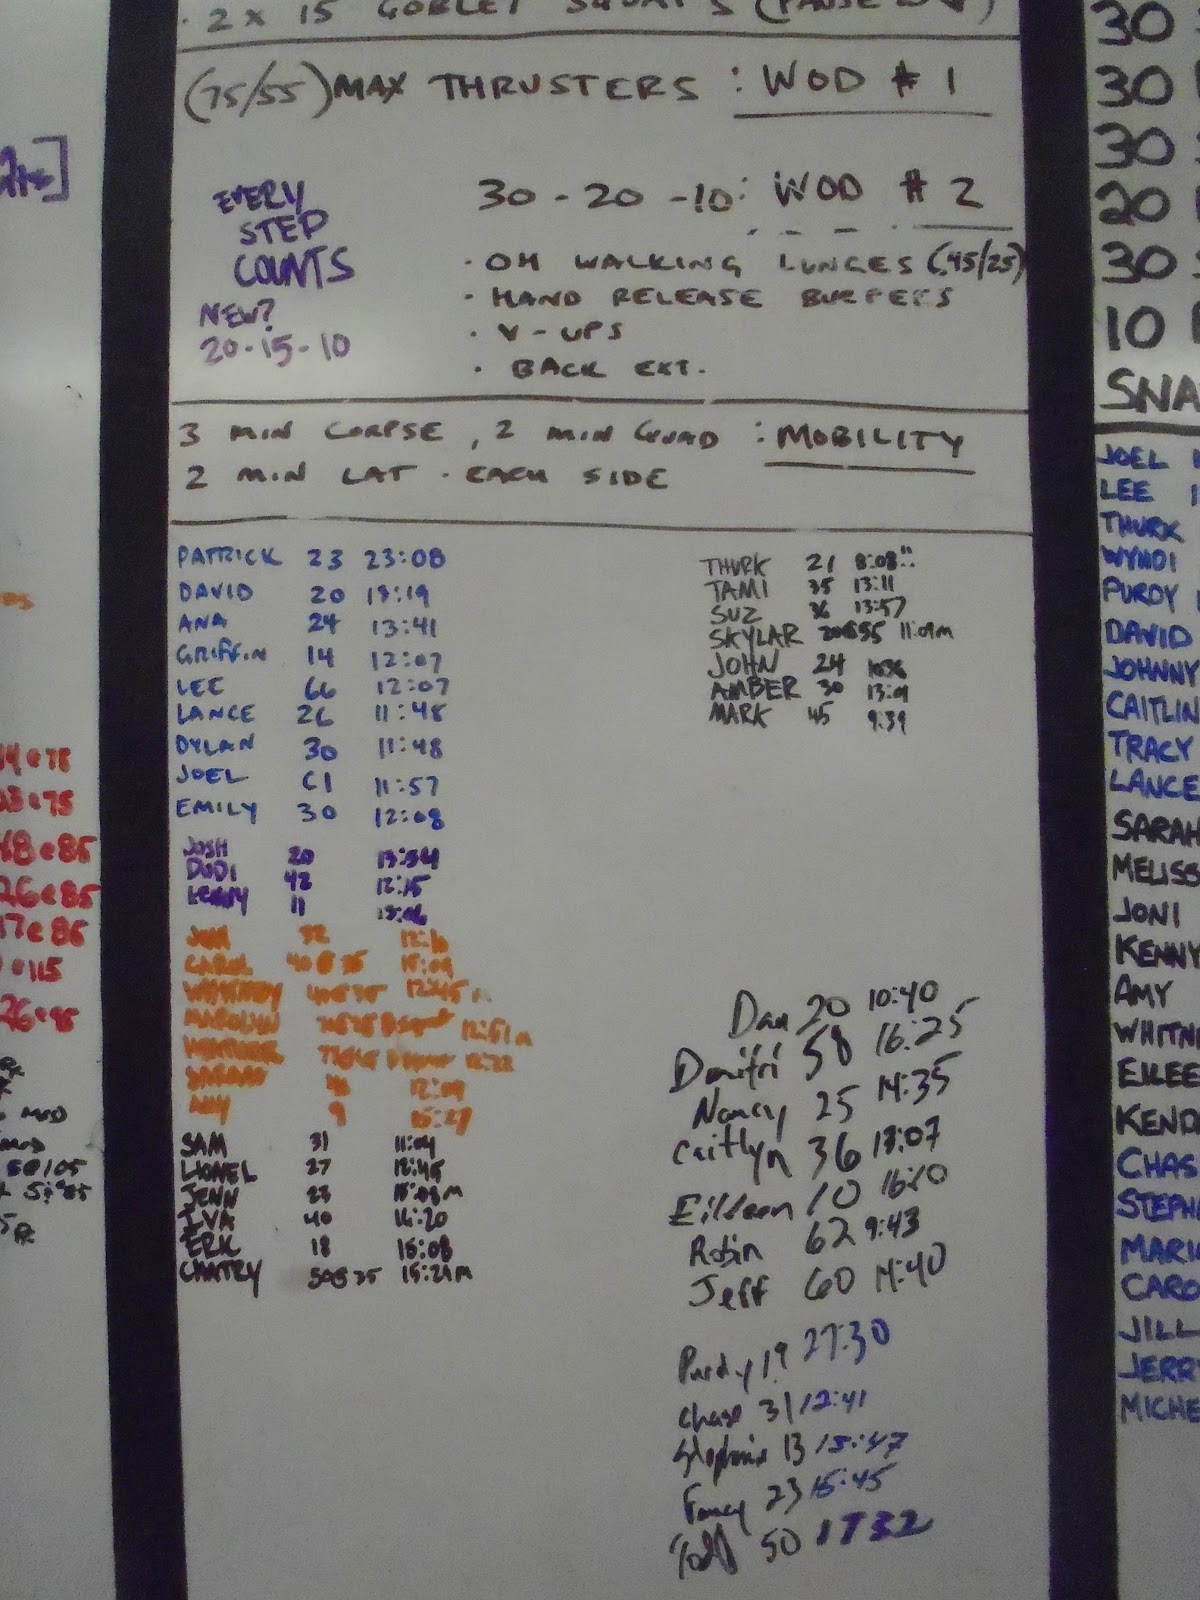 · 2 x 15 GOBLET SQUATS (PAUSE
(75/55) MAX THRUSTERS : WOD # 1
EVERY
STEP
COUNTS
NEW?
20-15-10
30 - 20 - 10: WOD # 2
· OH WALKING LUNGES (45/25)
· HAND RELEASE BURPEES
· V-UPS
· BACK EXT.
3 MIN CORPSE, 2 MIN QUAD : MOBILITY
2 MIN LAT - EACH SIDE
PATRICK 23 23:08
DAVID 20 13:19
ANA 24 13:41
GRIFFIN 14 12:07
LEE 66 12:07
LANCE 26 11:48
DYLAN 30 11:48
JOEL 61 11:57
EMILY 30 12:08
JOSH 20 13:54
DUDI 42 12:15
LENNY 11
JON 32
CAROL 40@35 15:09
WHITNEY
12:51m
12:09
AMY 9 15:27
SAM 31 11:04
LIONEL 27 12:45
JENN 23 15:08m
IVA 40 16:20
ERIK 18 15:08
CHATRY 50@35 15:21m
THURK 21 8:08
TAMI 35 13:11
SUZ 36 13:57
SKYLAR 11:01m
JOHN 24
AMBER 30 13:01
MARK 45 9:39
Dan 20 10:40
Dmitri 58 16:25
Nancy 25 14:35
Caitlyn 36 13:07
Eileen 10
Robin 62 9:43
Jeff 60 14:40
Purdy 19 27:30
Chase 31 12:41
Stephanie 13 13:47
23 15:45
Todd 50 17 32
@78
@75
48@85
26@85
17@85
@115
26@95
5@105
30
30
30
20
30
10
SNA
JOEL
LEE
THURK
WYNDI
PURDY
DAVID
JOHNNY
CAITLIN
TRACY
LANCE
SARAH
MELISS
JONI
KENNY
AMY
WHITN
EILEE
KEND
CHAS
STEPH
MARI
CARO
JILL
JERR
MICHE